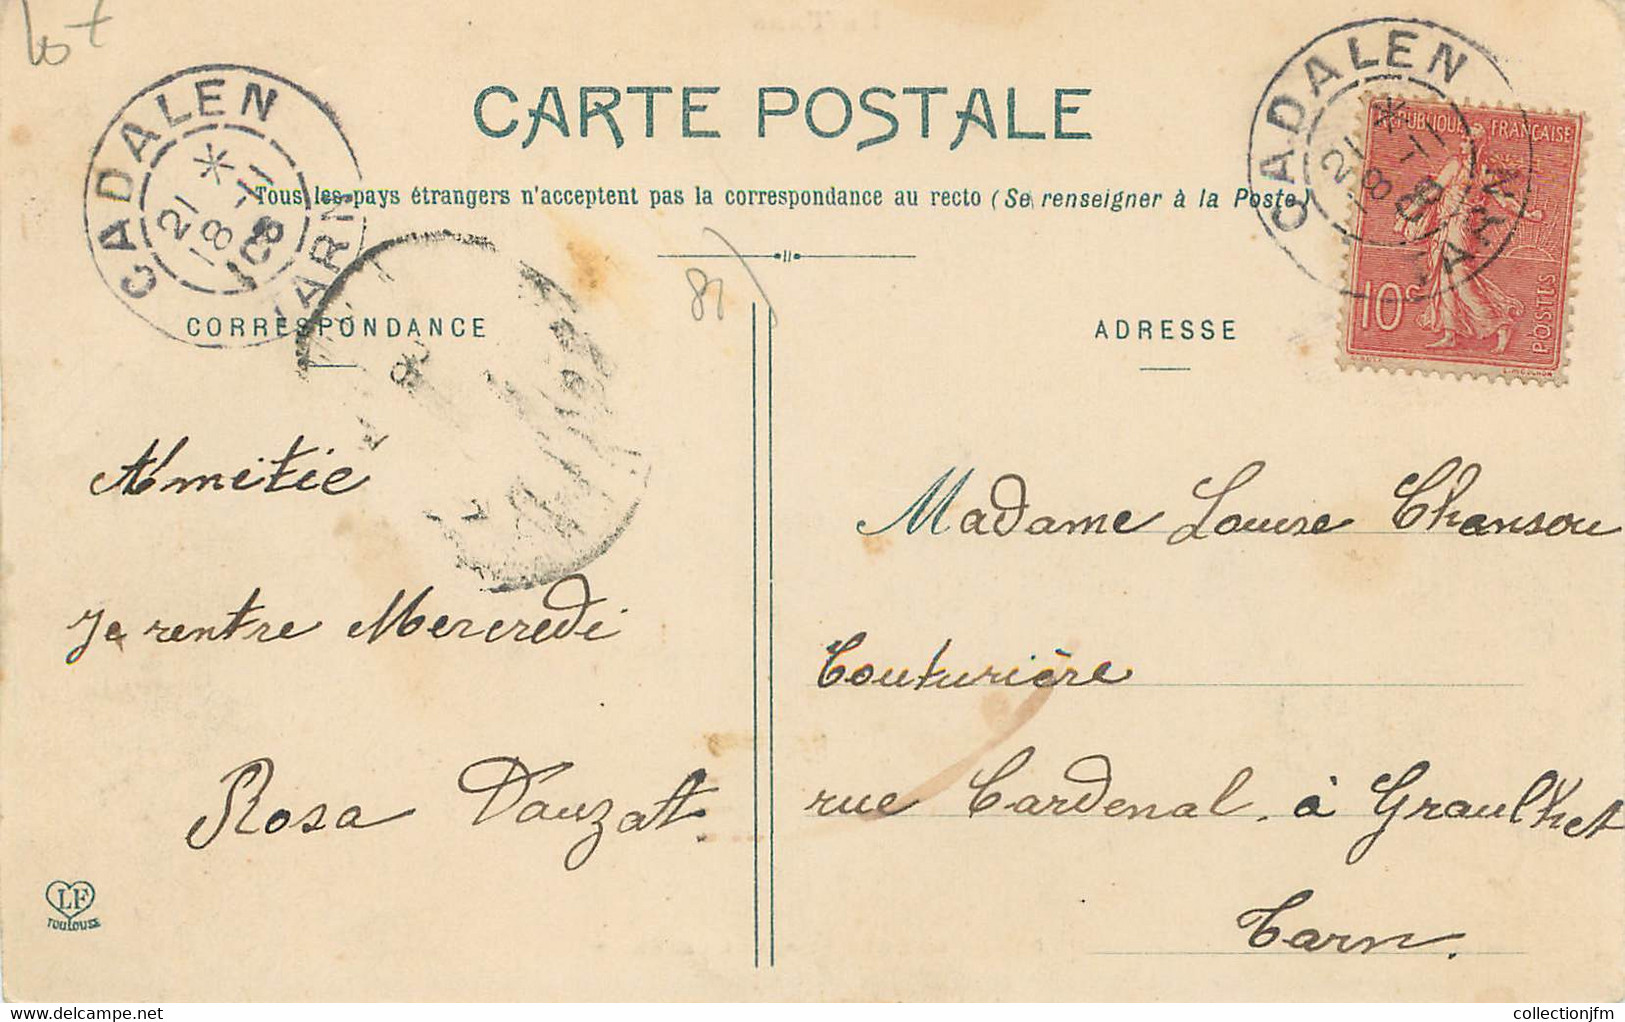 CARTE POSTALE
Tous les pays étrangers n'acceptent pas la correspondance au recto (Se renseigner à la Poste)
CADALEN
TARN
21
8
08
CADALEN
TARN
21
8
08
RÉPUBLIQUE FRANÇAISE
10c
POSTES
81
CORRESPONDANCE
ADRESSE
Amitié
Je rentre Mercredi
Rosa Dauzat.
Madame Louise Chansou
Couturière
rue Cardenal. à Graulhet
Tarn.
LF
TOULOUSE
collectionjfm